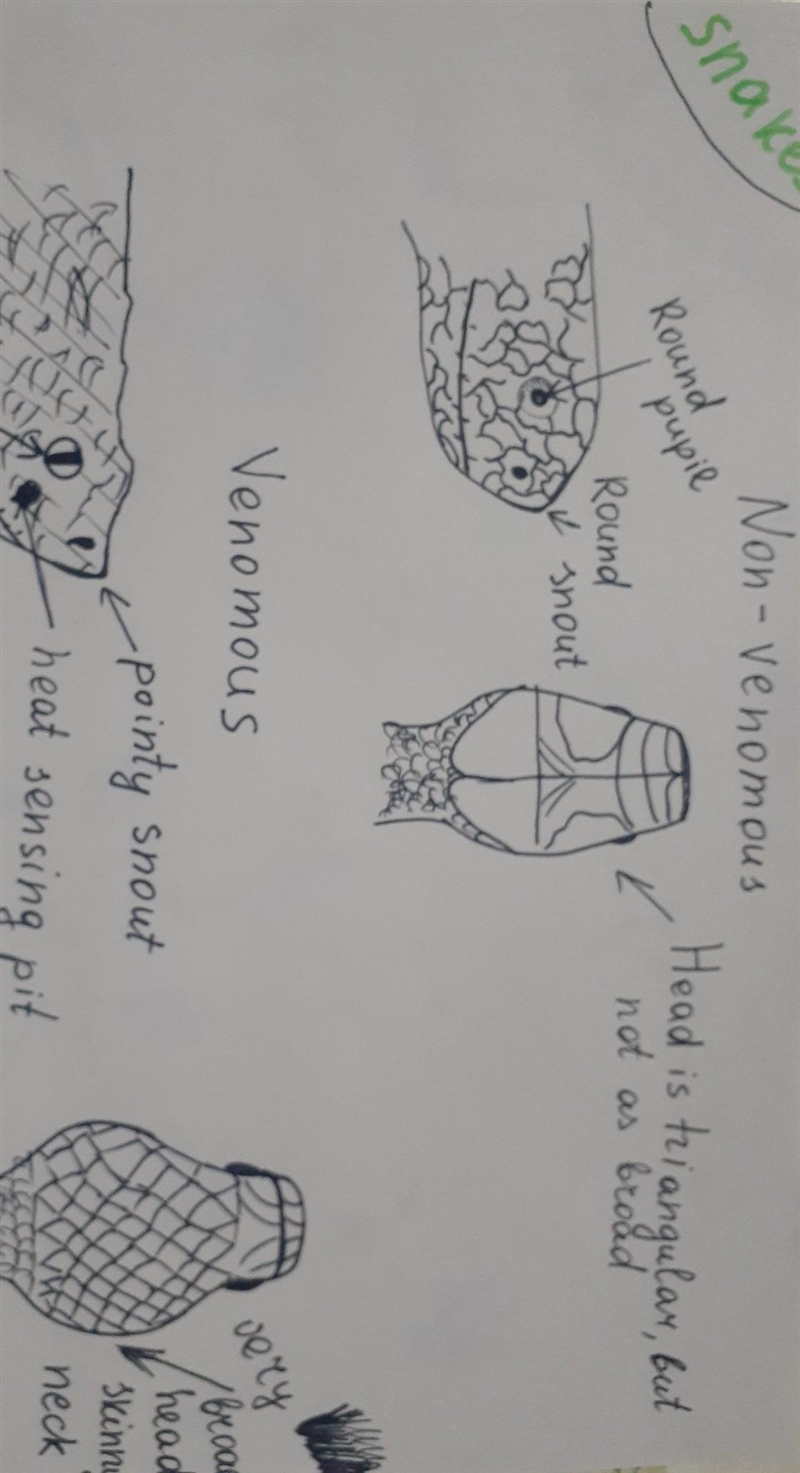 snakes
Non-venomous
Round
pupil
Round
snout
Head is triangular, but
not as broad
Venomous
pointy snout
heat sensing pit
very
broa
head
skinn
neck